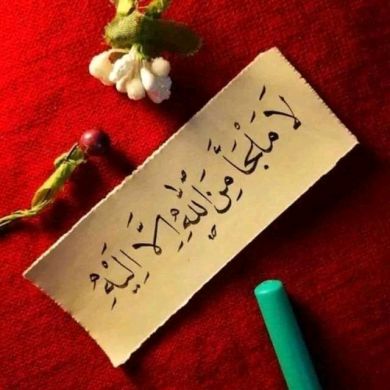 لَا مَلْجَأَ مِنَ اللّٰهِ إِلَّا إِلَيْهِ